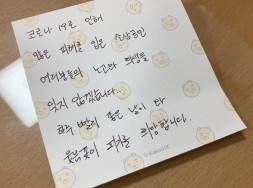 코로나 19로 인해
많은 피해를 입은 소상공인
여러분들의 노고와 희생을
잊지 않겠습니다..
하루 빨리 좋은 날이 와
웃음꽃이 피기를 희망합니다.